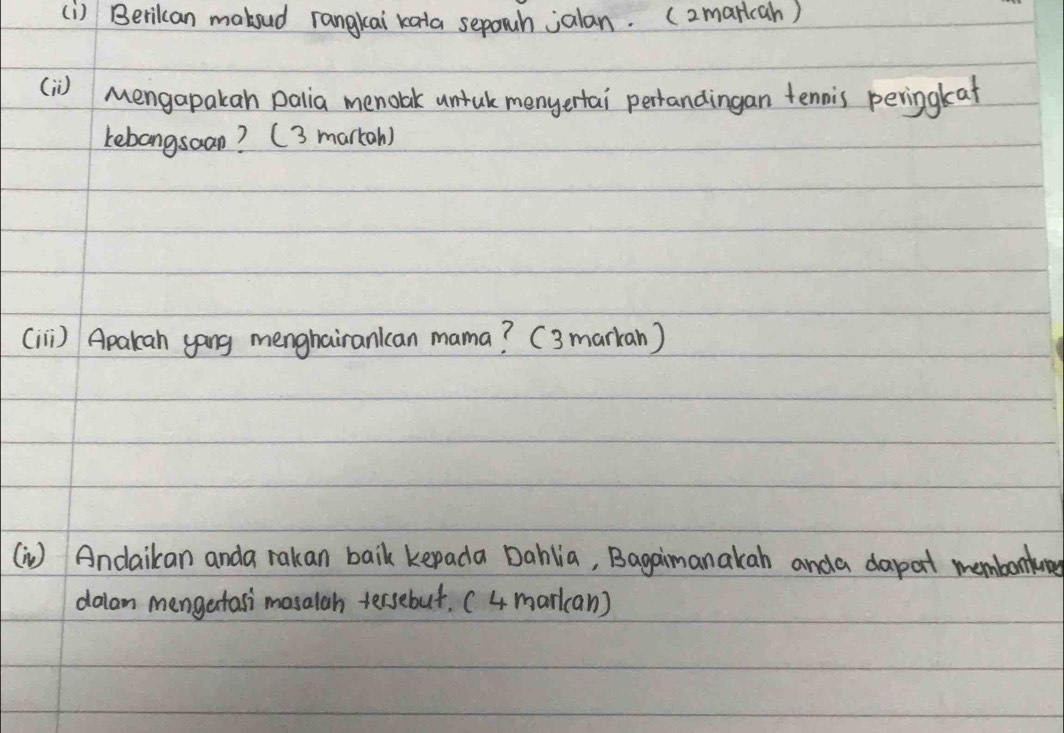 (i) Berikan maksud rangkai kata separuh jalan. (2 markah)
(ii) Mengapakah Dalia menolak untuk menyertai pertandingan tennis peringkat
kebangsaan? (3 markah)
(iii) Apakah yang menghairankan mama? (3 markah)
(iv) Andaikan anda rakan baik kepada Dahlia, Bagaimanakah anda dapat
dalam mengatasi masalah tersebut. (4 markah)